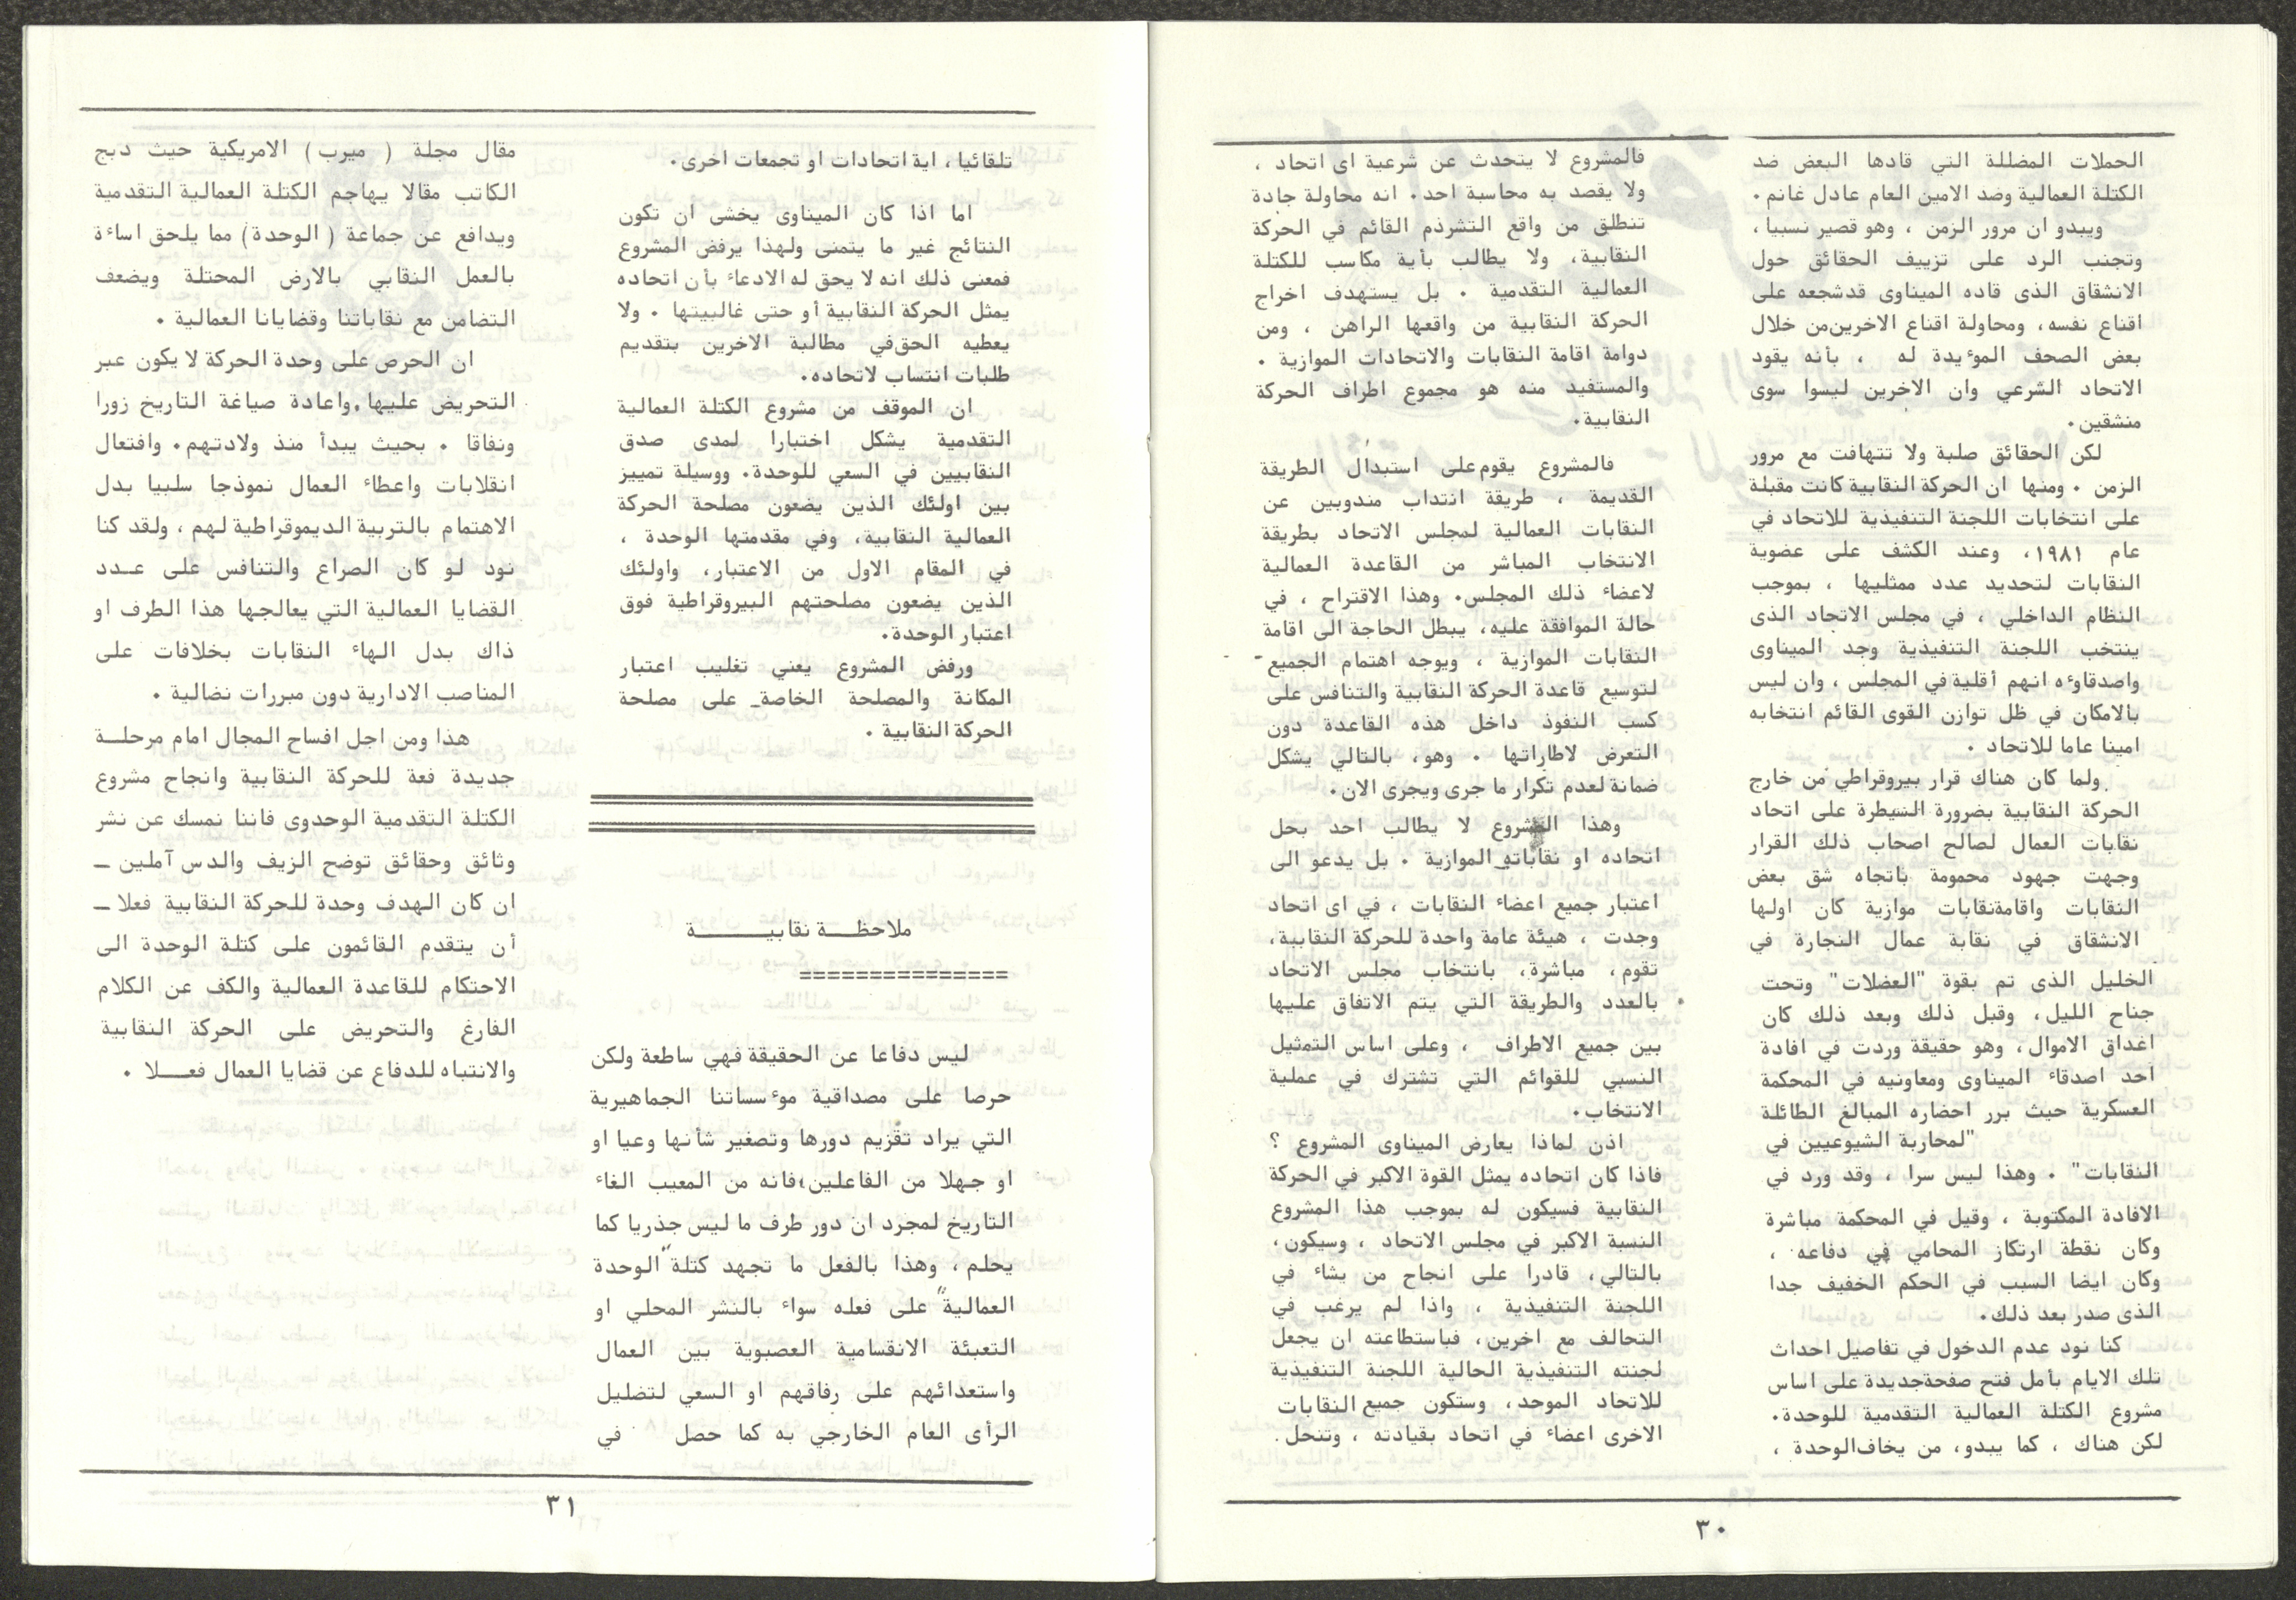 الحملات المضللة التي قادها البعض ضد
الكتلة العمالية وضد الامين العام عادل غانم.
ويبدو ان مرور الزمن ، وهو قصير نسبيا ،
وتجنب الرد على تزييف الحقائق حول
الانشقاق الذى قاده الميناوى قدشجعه على
اقناع نفسه، ومحاولة اقناع الاخرين من خلال
بعض الصحف الموءيدة له ، بأنه يقود
الاتحاد الشرعي وان الاخرين ليسوا سوى
منشقين.
لكن الحقائق صلبة ولا تتهافت مع مرور
الزمن . ومنها ان الحركة النقابية كانت مقبلة
على انتخابات اللجنة التنفيذية للاتحاد في
عام ١٩٨١، وعند الكشف على عضوية
النقابات لتحديد عدد ممثليها ، بموجب
النظام الداخلي ، في مجلس الاتحاد الذى
ينتخب اللجنة التنفيذية وجد الميناوى
واصدقاوءه انهم أقلية في المجلس ، وان ليس
بالامكان في ظل توازن القوى القائم انتخابه
امينا عاما للاتحاد .
ولما كان هناك قرار بيروقراطي من خارج
الحركة النقابية بضرورة السيطرة على اتحاد
نقابات العمال لصالح اصحاب ذلك القرار
وجهت جهود محمومة باتجاه شق بعض
النقابات واقامةنقابات موازية كان اولها
الانشقاق في نقابة عمال النجارة في
الخليل الذى تم بقوة "العضلات" وتحت
جناح الليل، وقبل ذلك وبعد ذلك كان
اغداق الاموال، وهو حقيقة وردت في افادة
احد اصدقاء الميناوى ومعاونيه في المحكمة
العسكرية حيث برر احضاره المبالغ الطائلة
"لمحاربة الشيوعيين في
النقابات" . وهذا ليس سرا ، وقد ورد في
الافادة المكتوبة ، وقيل في المحكمة مباشرة
وكان نقطة ارتكاز المحامي في دفاعه ،
وكان ايضا السبب في الحكم الخفيف جدا
الذى صدر بعد ذلك.
كنا نود عدم الدخول في تفاصيل احداث
تلك الايام بأمل فتح صفحةجديدة على اساس
مشروع الكتلة العمالية التقدمية للوحدة.
لكن هناك ، كما يبدو، من يخاف الوحدة ،
فالمشروع لا يتحدث عن شرعية اى اتحاد ،
ولا يقصد به محاسبة احد. انه محاولة جادة
تنطلق من واقع التشرذم القائم في الحركة
النقابية، ولا يطالب بأية مكاسب للكتلة
العمالية التقدمية . بل يستهدف اخراج
الحركة النقابية من واقعها الراهن ، ومن
دوامة اقامة النقابات والاتحادات الموازية .
والمستفيد منه هو مجموع اطراف الحركة
النقابية.
فالمشروع يقوم على استبدال الطريقة
القديمة ، طريقة انتداب مندوبين عن
النقابات العمالية لمجلس الاتحاد بطريقة
الانتخاب المباشر من القاعدة العمالية
لاعضاء ذلك المجلس. وهذا الاقتراح ، في
حالة الموافقة عليه، يبطل الحاجة الى اقامة
النقابات الموازية ، ويوجه اهتمام الجميع
لتوسيع قاعدة الحركة النقابية والتنافس على
كسب النفوذ داخل هذه القاعدة دون
التعرض لاطاراتها . وهو، بالتالي يشكل
ضمانة لعدم تكرار ما جرى ويجرى الان.
وهذا المشروع لا يطالب احد بحل
اتحاده او نقاباته الموازية . بل يدعو الى
اعتبار جميع اعضاء النقابات ، في اى اتحاد
وجدت ، هيئة عامة واحدة للحركة النقابية،
تقوم، مباشرة، بانتخاب مجلس الاتحاد
بالعدد والطريقة التي يتم الاتفاق عليها
بين جميع الاطراف ، وعلى اساس التمثيل
النسبي للقوائم التي تشترك في عملية
الانتخاب.
اذن لماذا يعارض الميناوى المشروع ؟
فاذا كان اتحاده يمثل القوة الاكبر في الحركة
النقابية فسيكون له بموجب هذا المشروع
النسبة الاكبر في مجلس الاتحاد ، وسيكون،
بالتالي، قادرا على انجاح من يشاء في
اللجنة التنفيذية ، واذا لم يرغب في
التحالف مع اخرين، فباستطاعته ان يجعل
لجنته التنفيذية الحالية اللجنة التنفيذية
للاتحاد الموحد، وستكون جميع النقابات
الاخرى اعضاء في اتحاد بقيادته ، وتنحل
٣٠
تلقائيا ، اية اتحادات او تجمعات اخرى.
اما اذا كان الميناوى يخشى ان تكون
النتائج غير ما يتمنى ولهذا يرفض المشروع
فمعنى ذلك انه لا يحق له الادعاء بأن اتحاده
يمثل الحركة النقابية أو حتى غالبيتها . ولا
يعطيه الحق في مطالبة الاخرين بتقديم
طلبات انتساب لاتحاده.
ان الموقف من مشروع الكتلة العمالية
التقدمية يشكل اختبارا لمدى صدق
النقابيين في السعي للوحدة. ووسيلة تمييز
بين اولئك الذين يضعون مصلحة الحركة
العمالية النقابية، وفي مقدمتها الوحدة ،
في المقام الاول من الاعتبار، واولئك
الذين يضعون مصلحتهم البيروقراطية فوق
اعتبار الوحدة.
ورفض المشروع يعني تغليب اعتبار
المكانة والمصلحة الخاصة_ على مصلحة
الحركة النقابية .
ملاحظـــة نقابيـــــــة
===============
ليس دفاعا عن الحقيقة فهي ساطعة ولكن
حرصا على مصداقية موءسساتنا الجماهيرية
التي يراد تقزيم دورها وتصغير شأنها وعيا او
او جهلا من الفاعلين،فانه من المعيب الغاء
التاريخ لمجرد ان دور طرف ما ليس جذريا كما
يحلم ، وهذا بالفعل ما تجهد كتلة "الوحدة
العمالية" على فعله سواء بالنشر المحلي او
التعبئة الانقسامية العصبوية بين العمال
واستعدائهم على رفاقهم او السعي لتضليل
الرأى العام الخارجي به كما حصل في
مقال مجلة ( ميرب) الامريكية حيث دبج
الكاتب مقالا يهاجم الكتلة العمالية التقدمية
ويدافع عن جماعة ( الوحدة) مما يلحق اساءة
بالعمل النقابي بالارض المحتلة ويضعف
التضامن مع نقاباتنا وقضايانا العمالية .
ان الحرص على وحدة الحركة لا يكون عبر
التحريض عليها.واعادة صياغة التاريخ زورا
ونفاقا . بحيث يبدأ منذ ولادتهم. وافتعال
انقلابات واعطاء العمال نموذجا سلبيا بدل
الاهتمام بالتربية الديموقراطية لهم ، ولقد كنا
نود لو كان الصراع والتنافس على عــدد
القضايا العمالية التي يعالجها هذا الطرف او
ذاك بدل الهاء النقابات بخلافات على
المناصب الادارية دون مبررات نضالية .
هذا ومن اجل افساح المجال امام مرحلــة
جديدة فعة للحركة النقابية وانجاح مشروع
الكتلة التقدمية الوحدوى فاننا نمسك عن نشر
وثائق وحقائق توضح الزيف والدس آملين _
ان كان الهدف وحدة للحركة النقابية فعلا _
أن يتقدم القائمون على كتلة الوحدة الى
الاحتكام للقاعدة العمالية والكف عن الكلام
الفارغ والتحريض على الحركة النقابية
والانتباه للدفاع عن قضايا العمال فعـــلا .
٣١